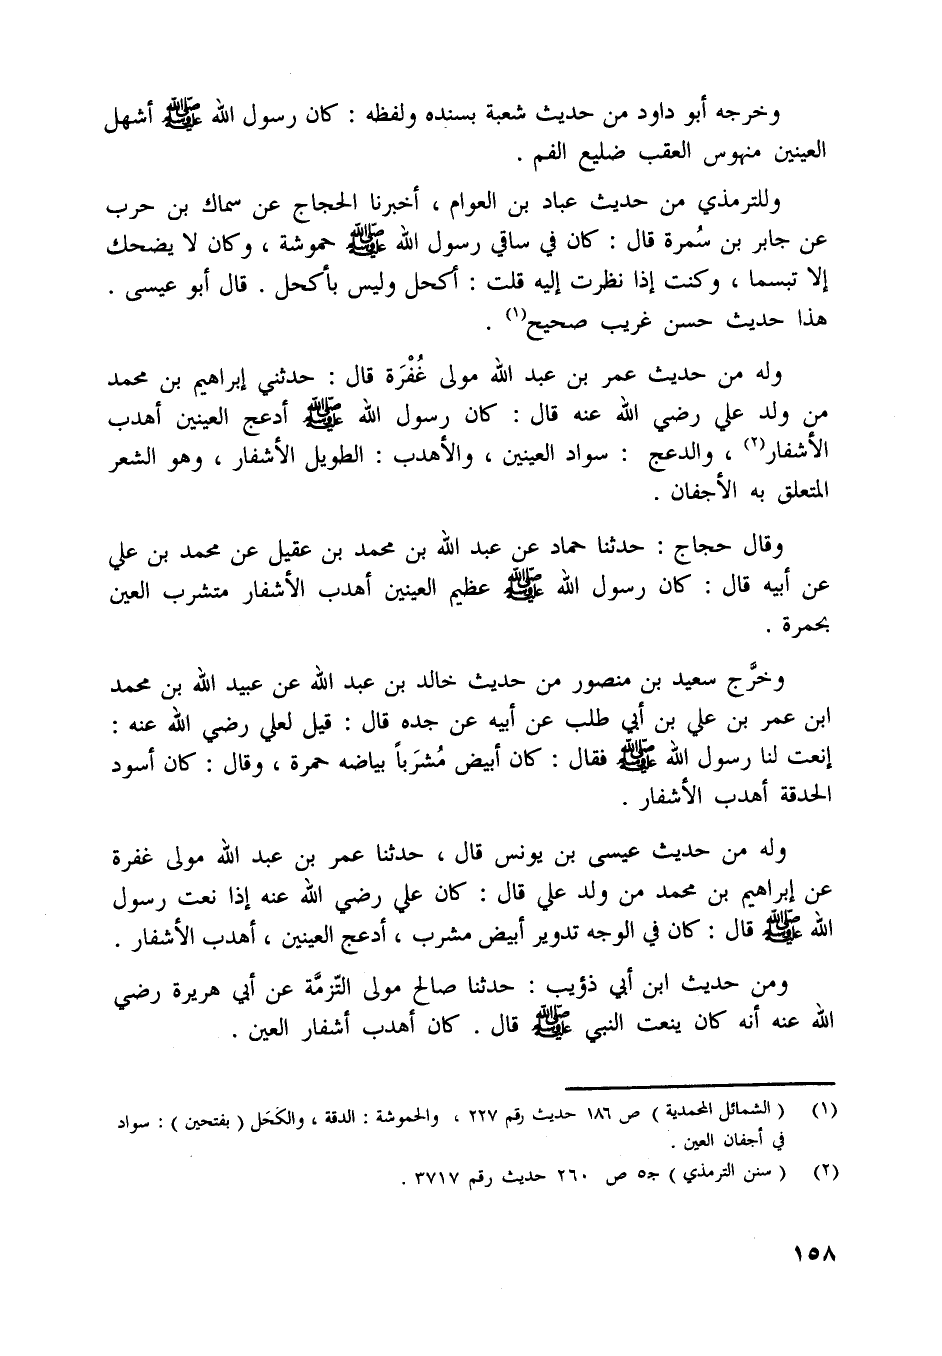 وخرجه أبو داود من حديث شعبة بسنده ولفظه : كان رسول الله ﷺ أشهل
العينين منهوس العقب ضليع الفم .
وللترمذي من حديث عباد بن العوام ، أخبرنا الحجاج عن سماك بن حرب
عن جابر بن سُمرة قال : كان في ساقي رسول الله ﷺ حموشة ، وكان لا يضحك
إلا تبسما ، وكنت إذا نظرت إليه قلت : أكحل وليس بأكحل . قال أبو عيسى .
هذا حديث حسن غريب صحيح(١) .
وله من حديث عمر بن عبد الله مولى غُفْرَة قال : حدثني إبراهيم بن محمد
من ولد علي رضي الله عنه قال : كان رسول الله ﷺ أدعج العينين أهدب
الأشفار(٢) ، والدعج : سواد العينين ، والأهدب : الطويل الأشفار ، وهو الشعر
المتعلق به الأجفان .
وقال حجاج : حدثنا حماد عن عبد الله بن محمد بن عقيل عن محمد بن علي
عن أبيه قال : كان رسول الله ﷺ عظيم العينين أهدب الأشفار متشرب العين
بحمرة .
وخرَّج سعيد بن منصور من حديث خالد بن عبد الله عن عبيد الله بن محمد
ابن عمر بن علي بن أبي طلب عن أبيه عن جده قال : قيل لعلي رضي الله عنه :
إنعت لنا رسول الله ﷺ فقال : كان أبيض مُشرَباً بياضه حمرة ، وقال : كان أسود
الحدقة أهدب الأشفار .
وله من حديث عيسى بن يونس قال ، حدثنا عمر بن عبد الله مولى غفرة
عن إبراهيم بن محمد من ولد علي قال : كان علي رضي الله عنه إذا نعت رسول
الله ﷺ قال : كان في الوجه تدوير أبيض مشرب ، أدعج العينين ، أهدب الأشفار .
ومن حديث ابن أبي ذؤيب : حدثنا صالح مولى التّزمَّة عن أبي هريرة رضي
الله عنه أنه كان ينعت النبي ﷺ قال . كان أهدب أشفار العين .
(١) ( الشمائل المحمدية ) ص ١٨٦ حديث رقم ٢٢٧ ، والحموشة : الدقة ، والكَحَل ( بفتحين ) : سواد
في أجفان العين .
(٢) ( سنن الترمذي ) جـ٥ ص ٢٦٠ حديث رقم ٣٧١٧ .
١٥٨